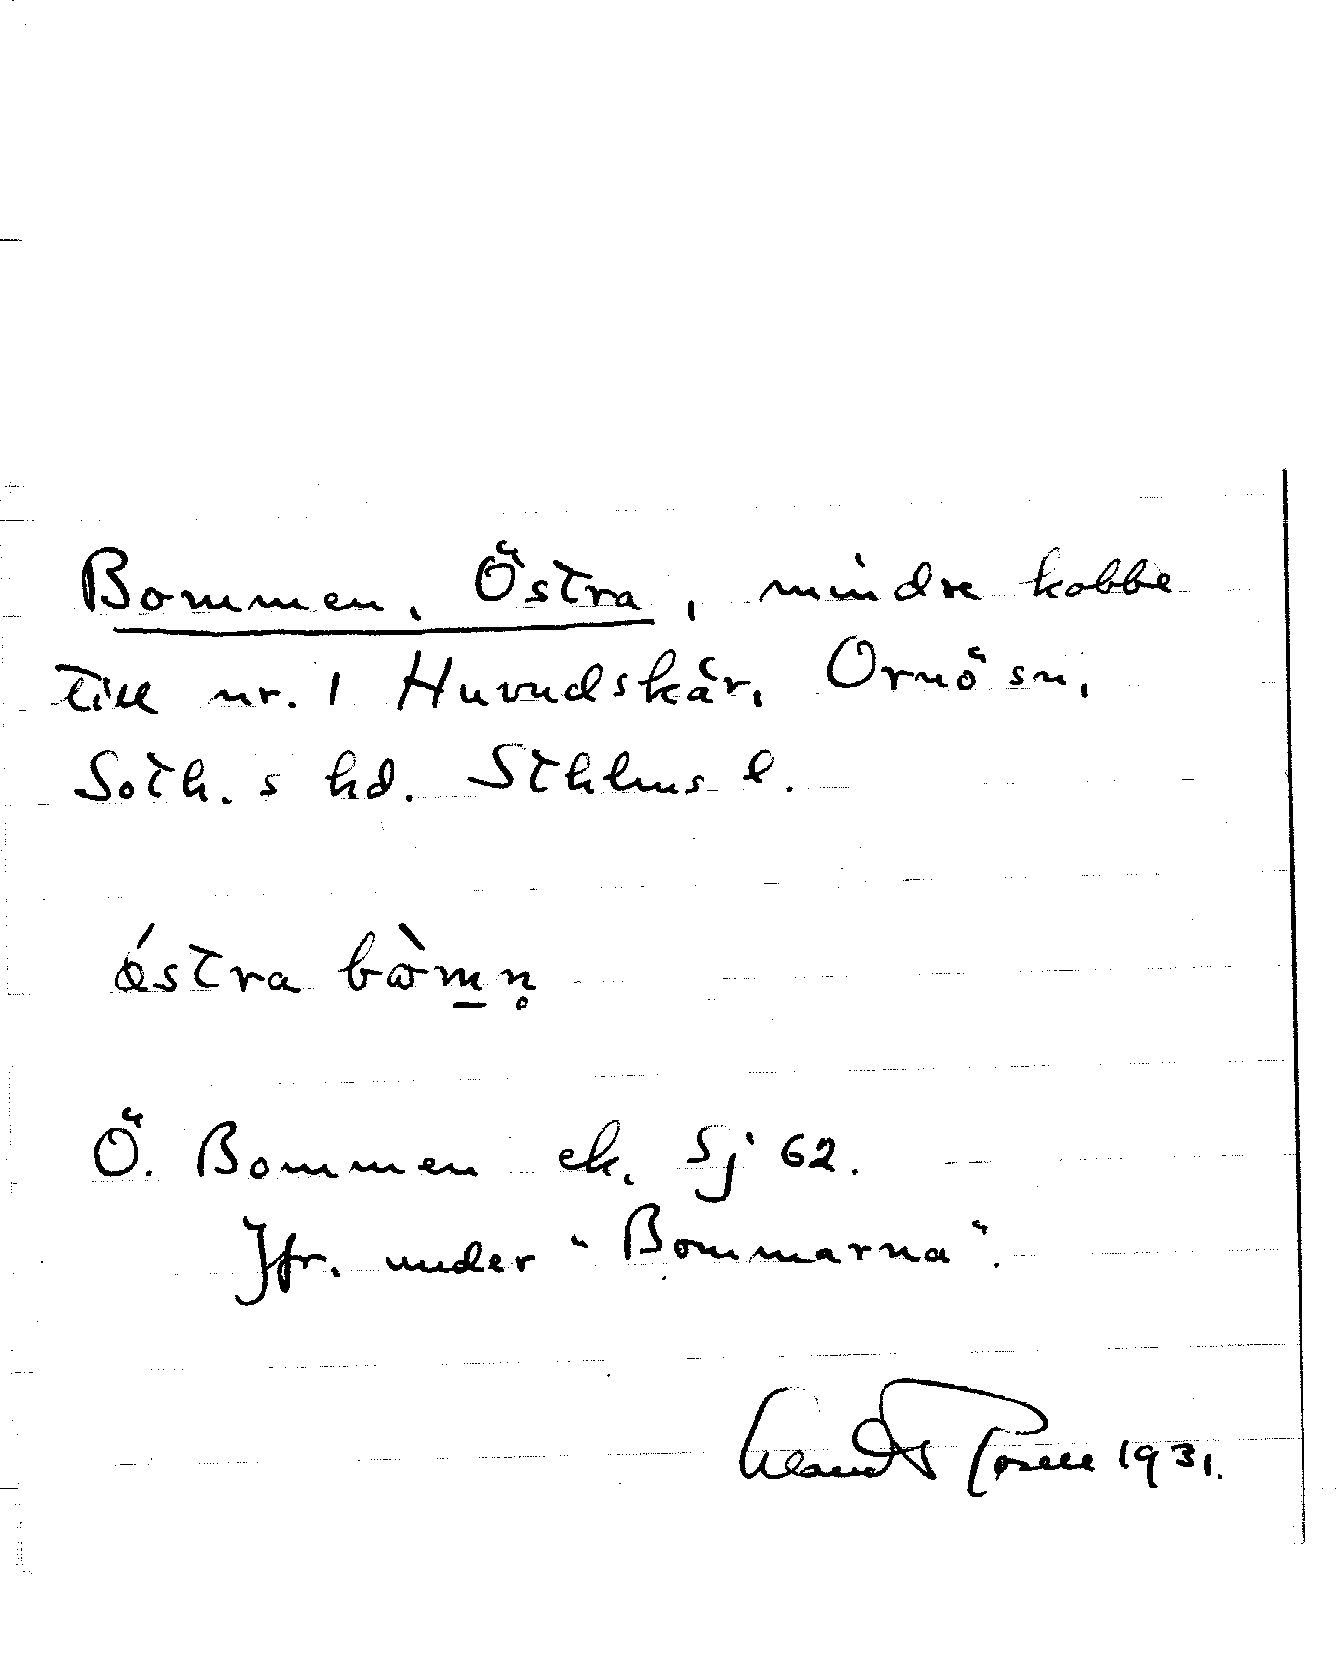 Bommen, Östra, mindre kobbe
till nr. 1 Huvudskär, Ornö sn,
Soth. s hd. Sthlms l.
östra bòm̲n̥
Ö. Bommen ek. Sj 62.
Jfr. under "Bommarna".
1931.